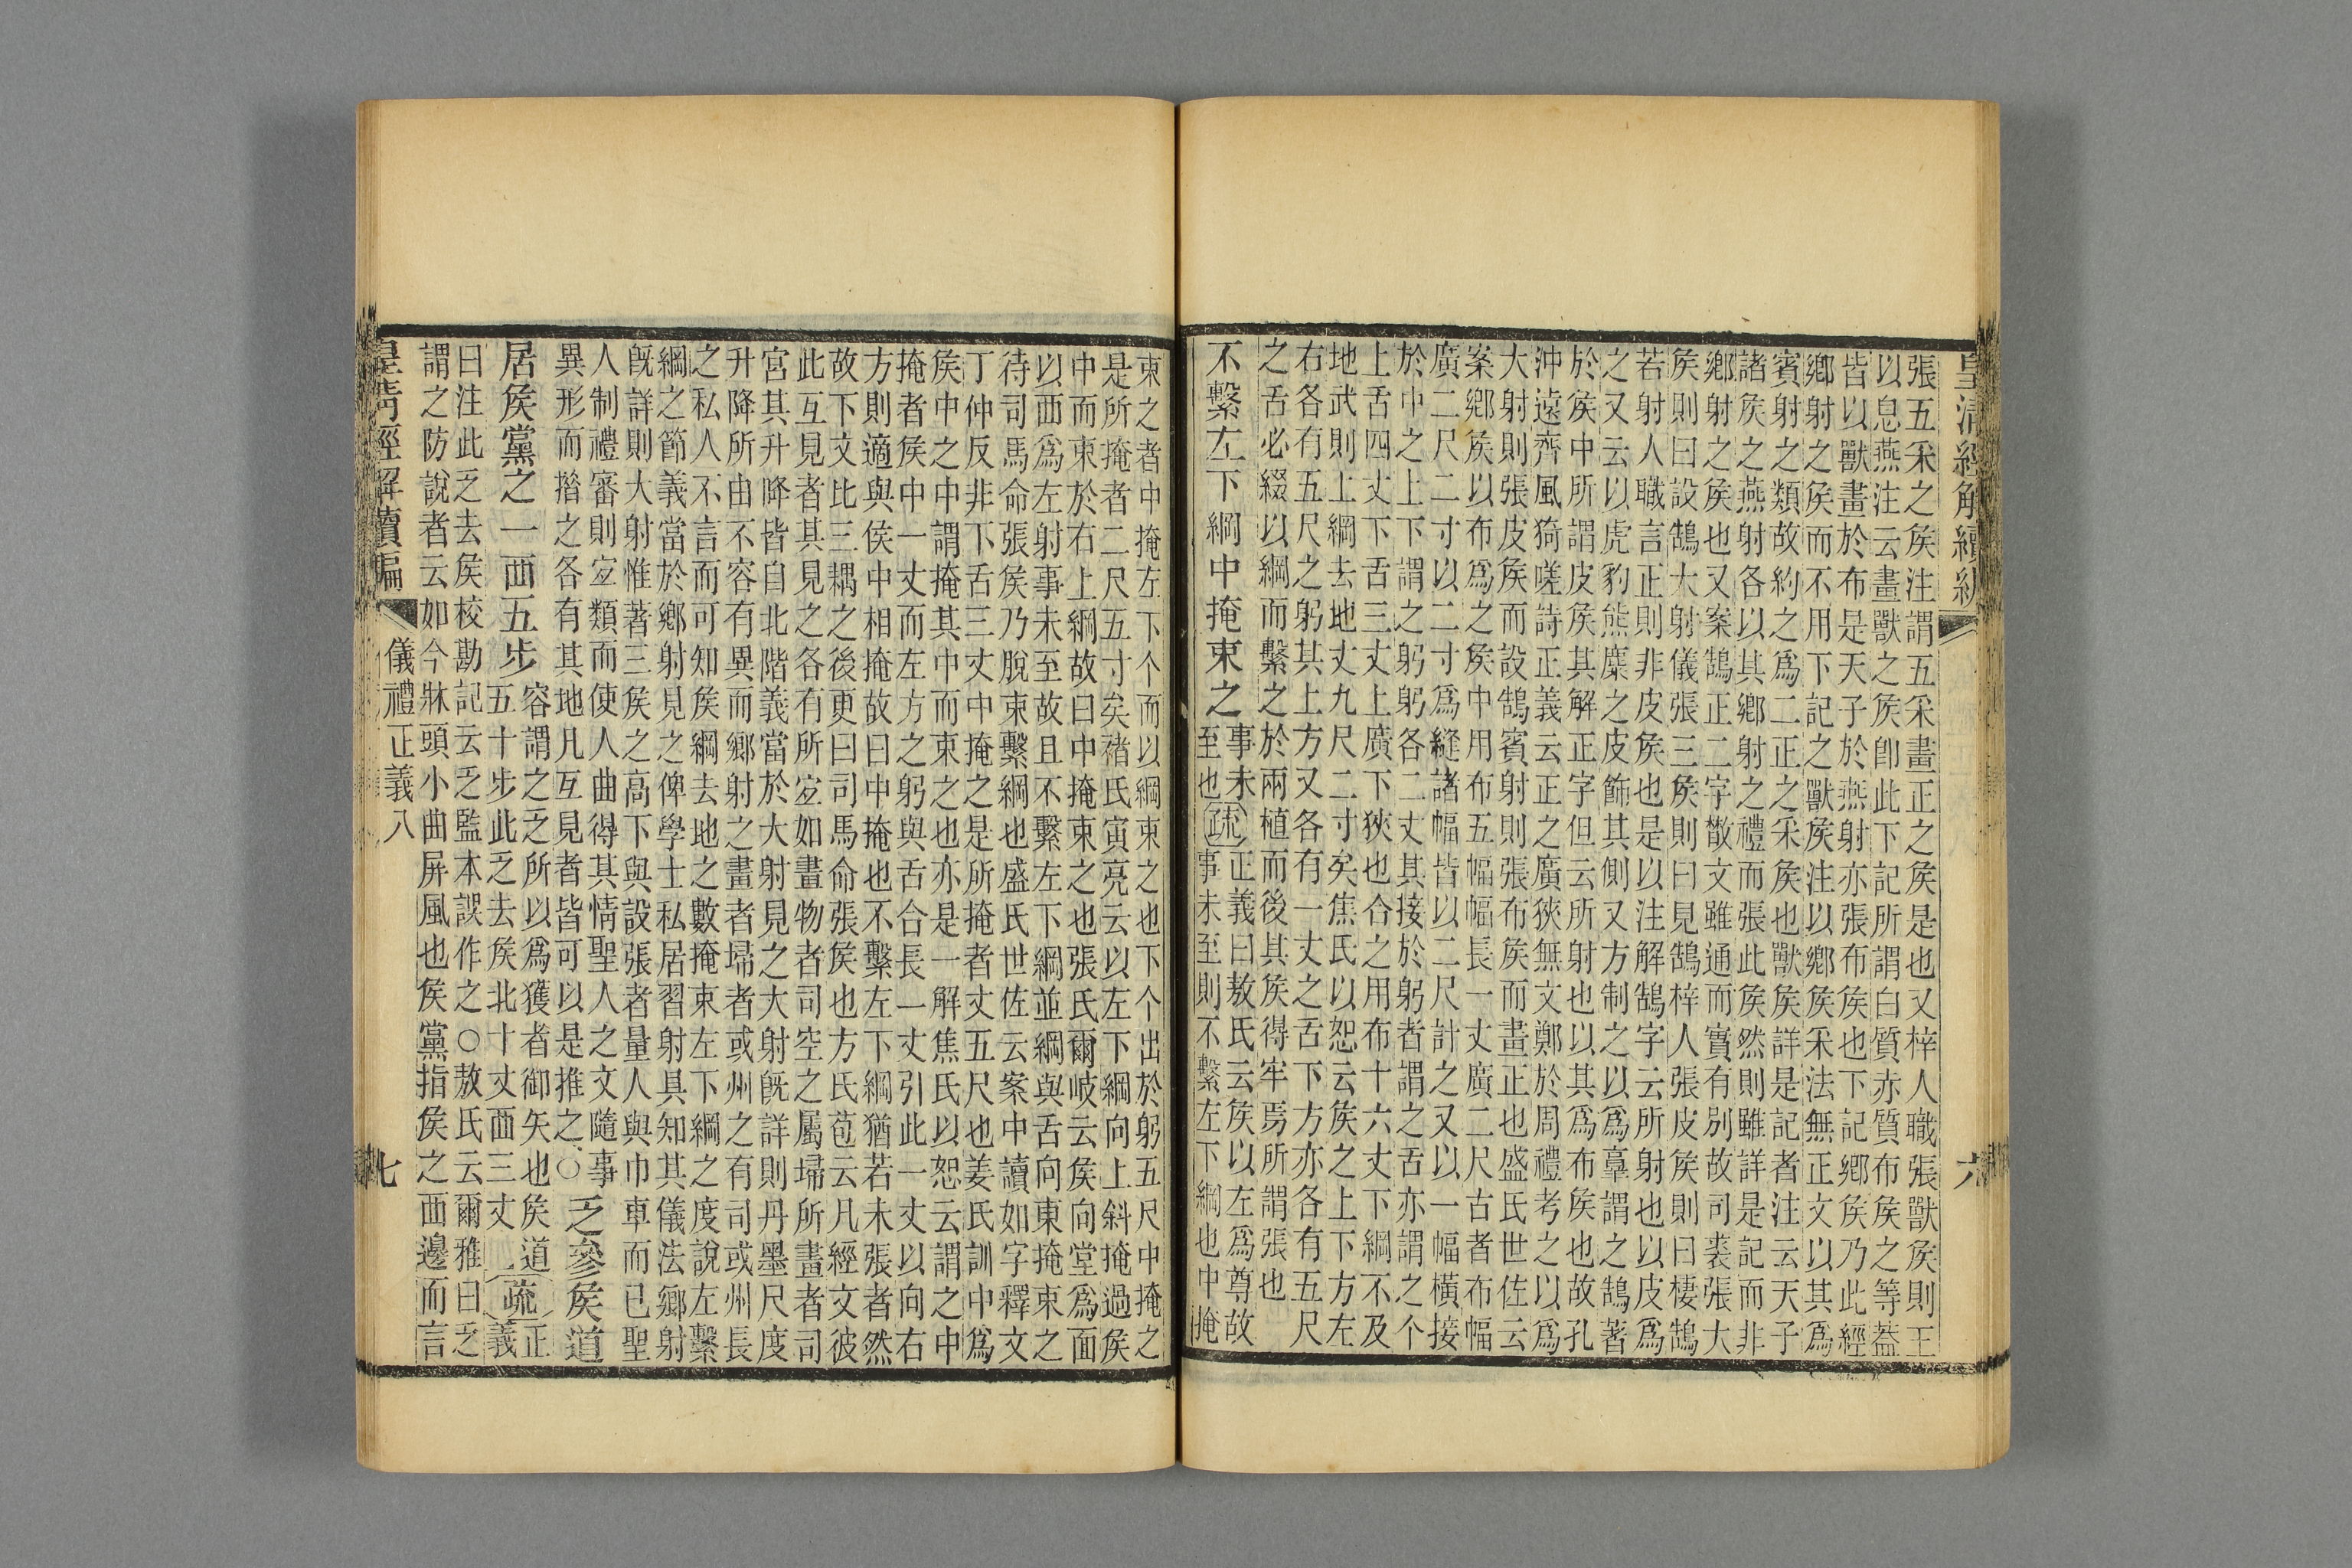 皇清經解續編
六
張五采之侯注謂五采畫正之侯是也又梓人職張獸侯則王
以息燕注云畫獸之侯卽此下記所謂白質赤質布侯之等葢
皆以獸畫於布是天子於燕射亦張布侯也下記鄉侯乃此經
鄉射之侯而不用下記之獸侯注以鄉侯采法無正文以其爲
賓射之類故約之爲二正之采侯也獸侯詳是記者注云天子
諸侯之燕射各以其鄉射之禮而張此侯然則雖詳是記而非
鄉射之侯也又案鵠正二字散文雖通而實有別故司裘張大
侯則曰設鵠大射儀張三侯則曰見鵠梓人張皮侯則曰棲鵠
若射人職言正則非皮侯也是以注解鵠字云所射也以皮爲
之又云以虎豹熊麋之皮飾其側又方制之以爲辜謂之鵠著
於侯中所謂皮侯其解正字但云所射也以其爲布侯也故孔
沖遠齊風猗嗟詩正義云正之廣狹無文鄭於周禮考之以爲
大射則張皮侯而設鵠賓射則張布侯而畫正也盛氏世佐云
案鄉侯以布爲之侯中用布五幅幅長一丈廣二尺古者布幅
廣二尺二寸以二寸爲縫諸幅皆以二尺計之又以一幅橫接
於中之上下謂之躬躬各二丈其接於躬者謂之舌亦謂之个
上舌四丈下舌三丈上廣下狹也合之用布十六丈下綱不及
地武則上綱去地丈九尺二寸矣焦氏以恕云侯之上下方左
右各有五尺之躬其上方又各有一丈之舌下方亦各有五尺
之舌必綴以綱而繫之於兩植而後其侯得牢焉所謂張也
不繫左下綱中掩束之事未至也疏正義曰敖氏云侯以左爲尊故事未至則不繫左下綱也中掩
束之者中掩左下个而以綱束之也下个出於躬五尺中掩之
是所掩者二尺五寸矣褚氏寅亮云以左下綱向上斜掩過侯
中而束於右上綱故曰中掩束之也張氏爾岐云侯向堂爲面
以西爲左射事未至故且不繫左下綱並綱與舌向東掩束之
待司馬命張侯乃脫束繫綱也盛氏世佐云案中讀如字釋文
丁仲反非下舌三丈中掩之是所掩者丈五尺也姜氏訓中爲
侯中之中謂掩其中而束之也亦是一解焦氏以恕云謂之中
掩者侯中一丈而左方之躬與舌合長一丈引此一丈以向右
方則適與侯中相掩故曰中掩也不繫左下綱猶若未張者然
故下文比三耦之後更曰司馬命張侯也方氏苞云凡經文彼
此互見者其見之各有所宜如畫物者司空之屬埽所畫者司
宮其升降皆自北階義當於大射見之大射旣詳則丹墨尺度
升降所由不容有異而鄉射之畫者埽者或州之有司或州長
之私人不言而可知矣綱去地之數掩束左下綱之度說左繫
綱之節義當於鄉射見之俾學士私居習射具知其儀法鄉射
旣詳則大射惟著三侯之高下與設張者量人與巾車而已聖
人制禮審則宜類而使人曲得其情聖人之文隨事
異形而措之各有其地凡互見者皆可以是推之○乏參侯道
居侯黨之一西五步容謂之乏所以爲獲者御矢也侯道五十步此乏去侯北十丈西三丈疏正義
曰注此乏去侯校勘記云乏監本誤作之○敖氏云爾雅曰乏
謂之防說者云如今牀頭小曲屏風也侯黨指侯之西邊而言
皇清經解續編
儀禮正義八
七